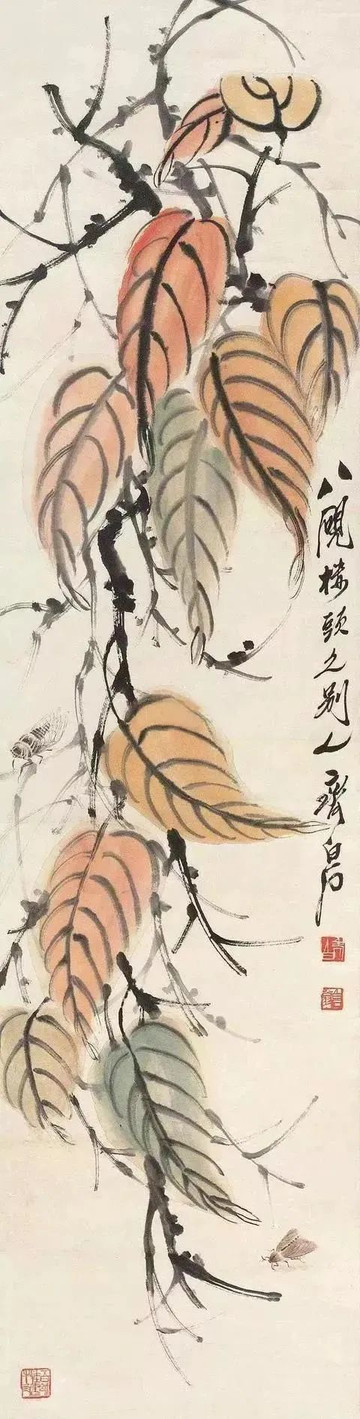 八硯楼頭久别人齊白石